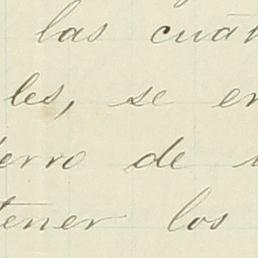 las cuat
les, se en
erro de
tener los